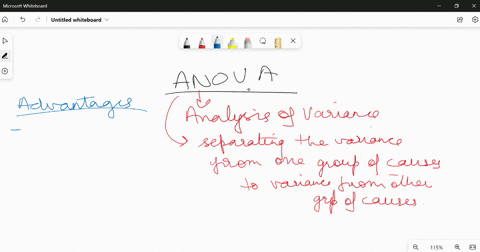 Microsoft Whiteboard
Untitled whiteboard
ANOVA
Advantages
Analysis of Variance
separating the variance
from one group of causes
to variance from other
grp of causes.
115%